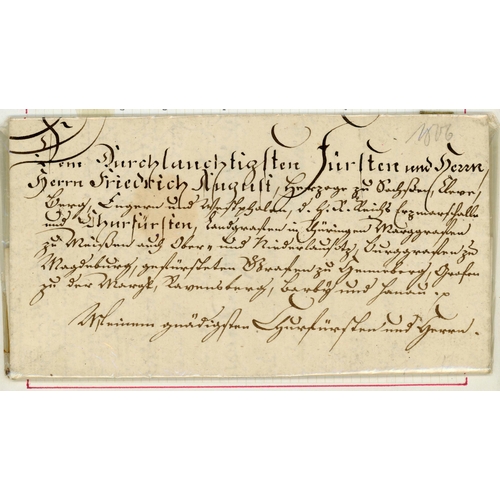 1806
Dem Durchlauchtigsten Fürsten und Herrn,
Herrn Friedrich August, Herzoge zu Sachsen, Cleve,
Berg, Engern und Westphalen, d. H. R. Reichs Erzmarschall
und Churfürsten, Landgrafen in Thüringen Marggrafen
zu Meißen auch Ober, und Niederlausitz, Burggrafen zu
Magdeburg, gefürsteten Grafen zu Henneberg, Grafen
zu der Margk, Ravensberg, Barby und Hanau
Meinem gnädigsten Churfürsten und Herrn.